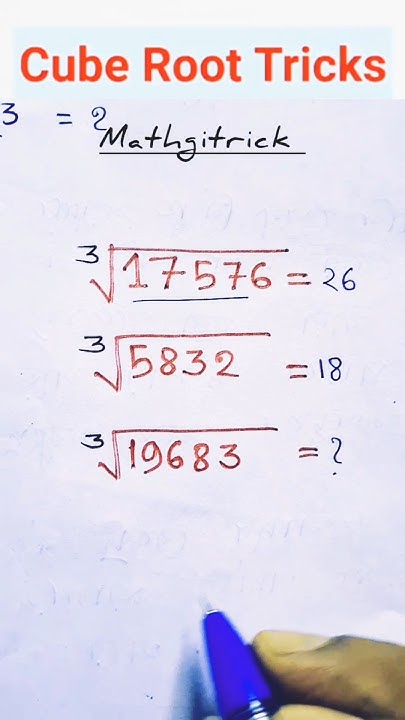 Cube Root Tricks
3 = ?
Mathgitrick
∛17576 = 26
∛5832 = 18
∛19683 = ?